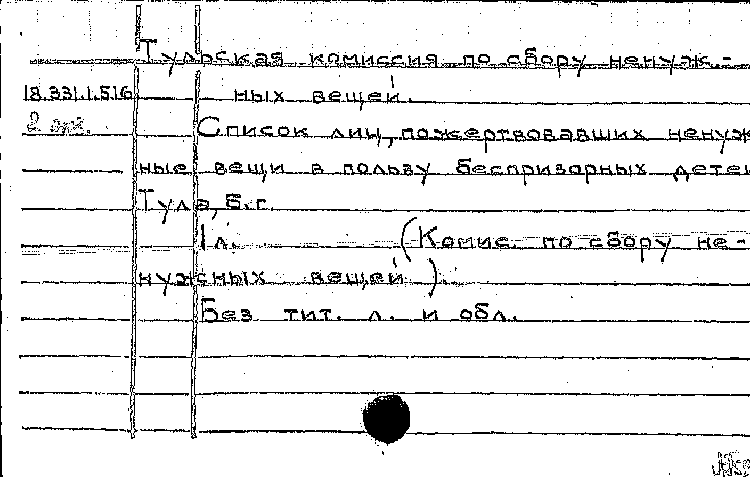 Тульская комиссия по сбору ненуж-
18.331.1.516 ных вещей.
2 экз. Список лиц, пожертвовавших ненуж
ные вещи в пользу беспризорных детей
Тула, б.г.
1 л. (Комис. по сбору не-
нужных вещей).
Без тит. л. и обл.